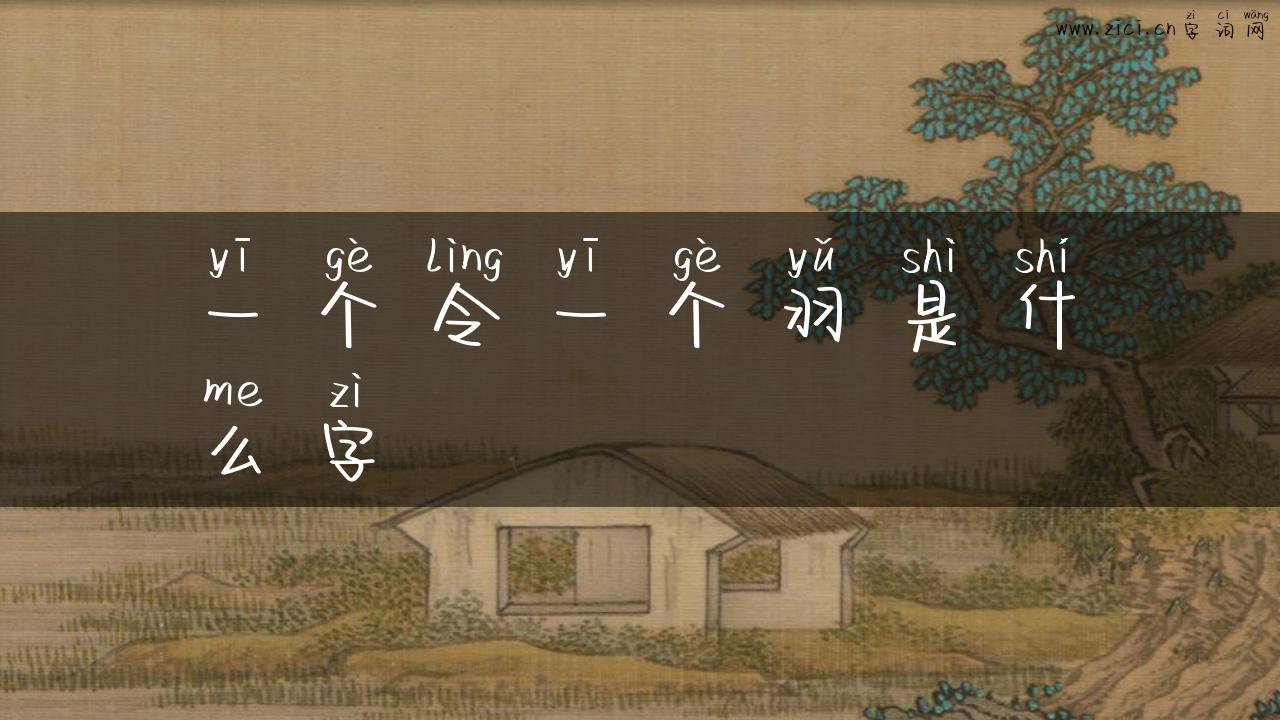 zì cí wǎng
www.zici.cn 字 词 网
yī gè lìng yī gè yǔ shì shí
一 个 令 一 个 羽 是 什
me zì
么 字